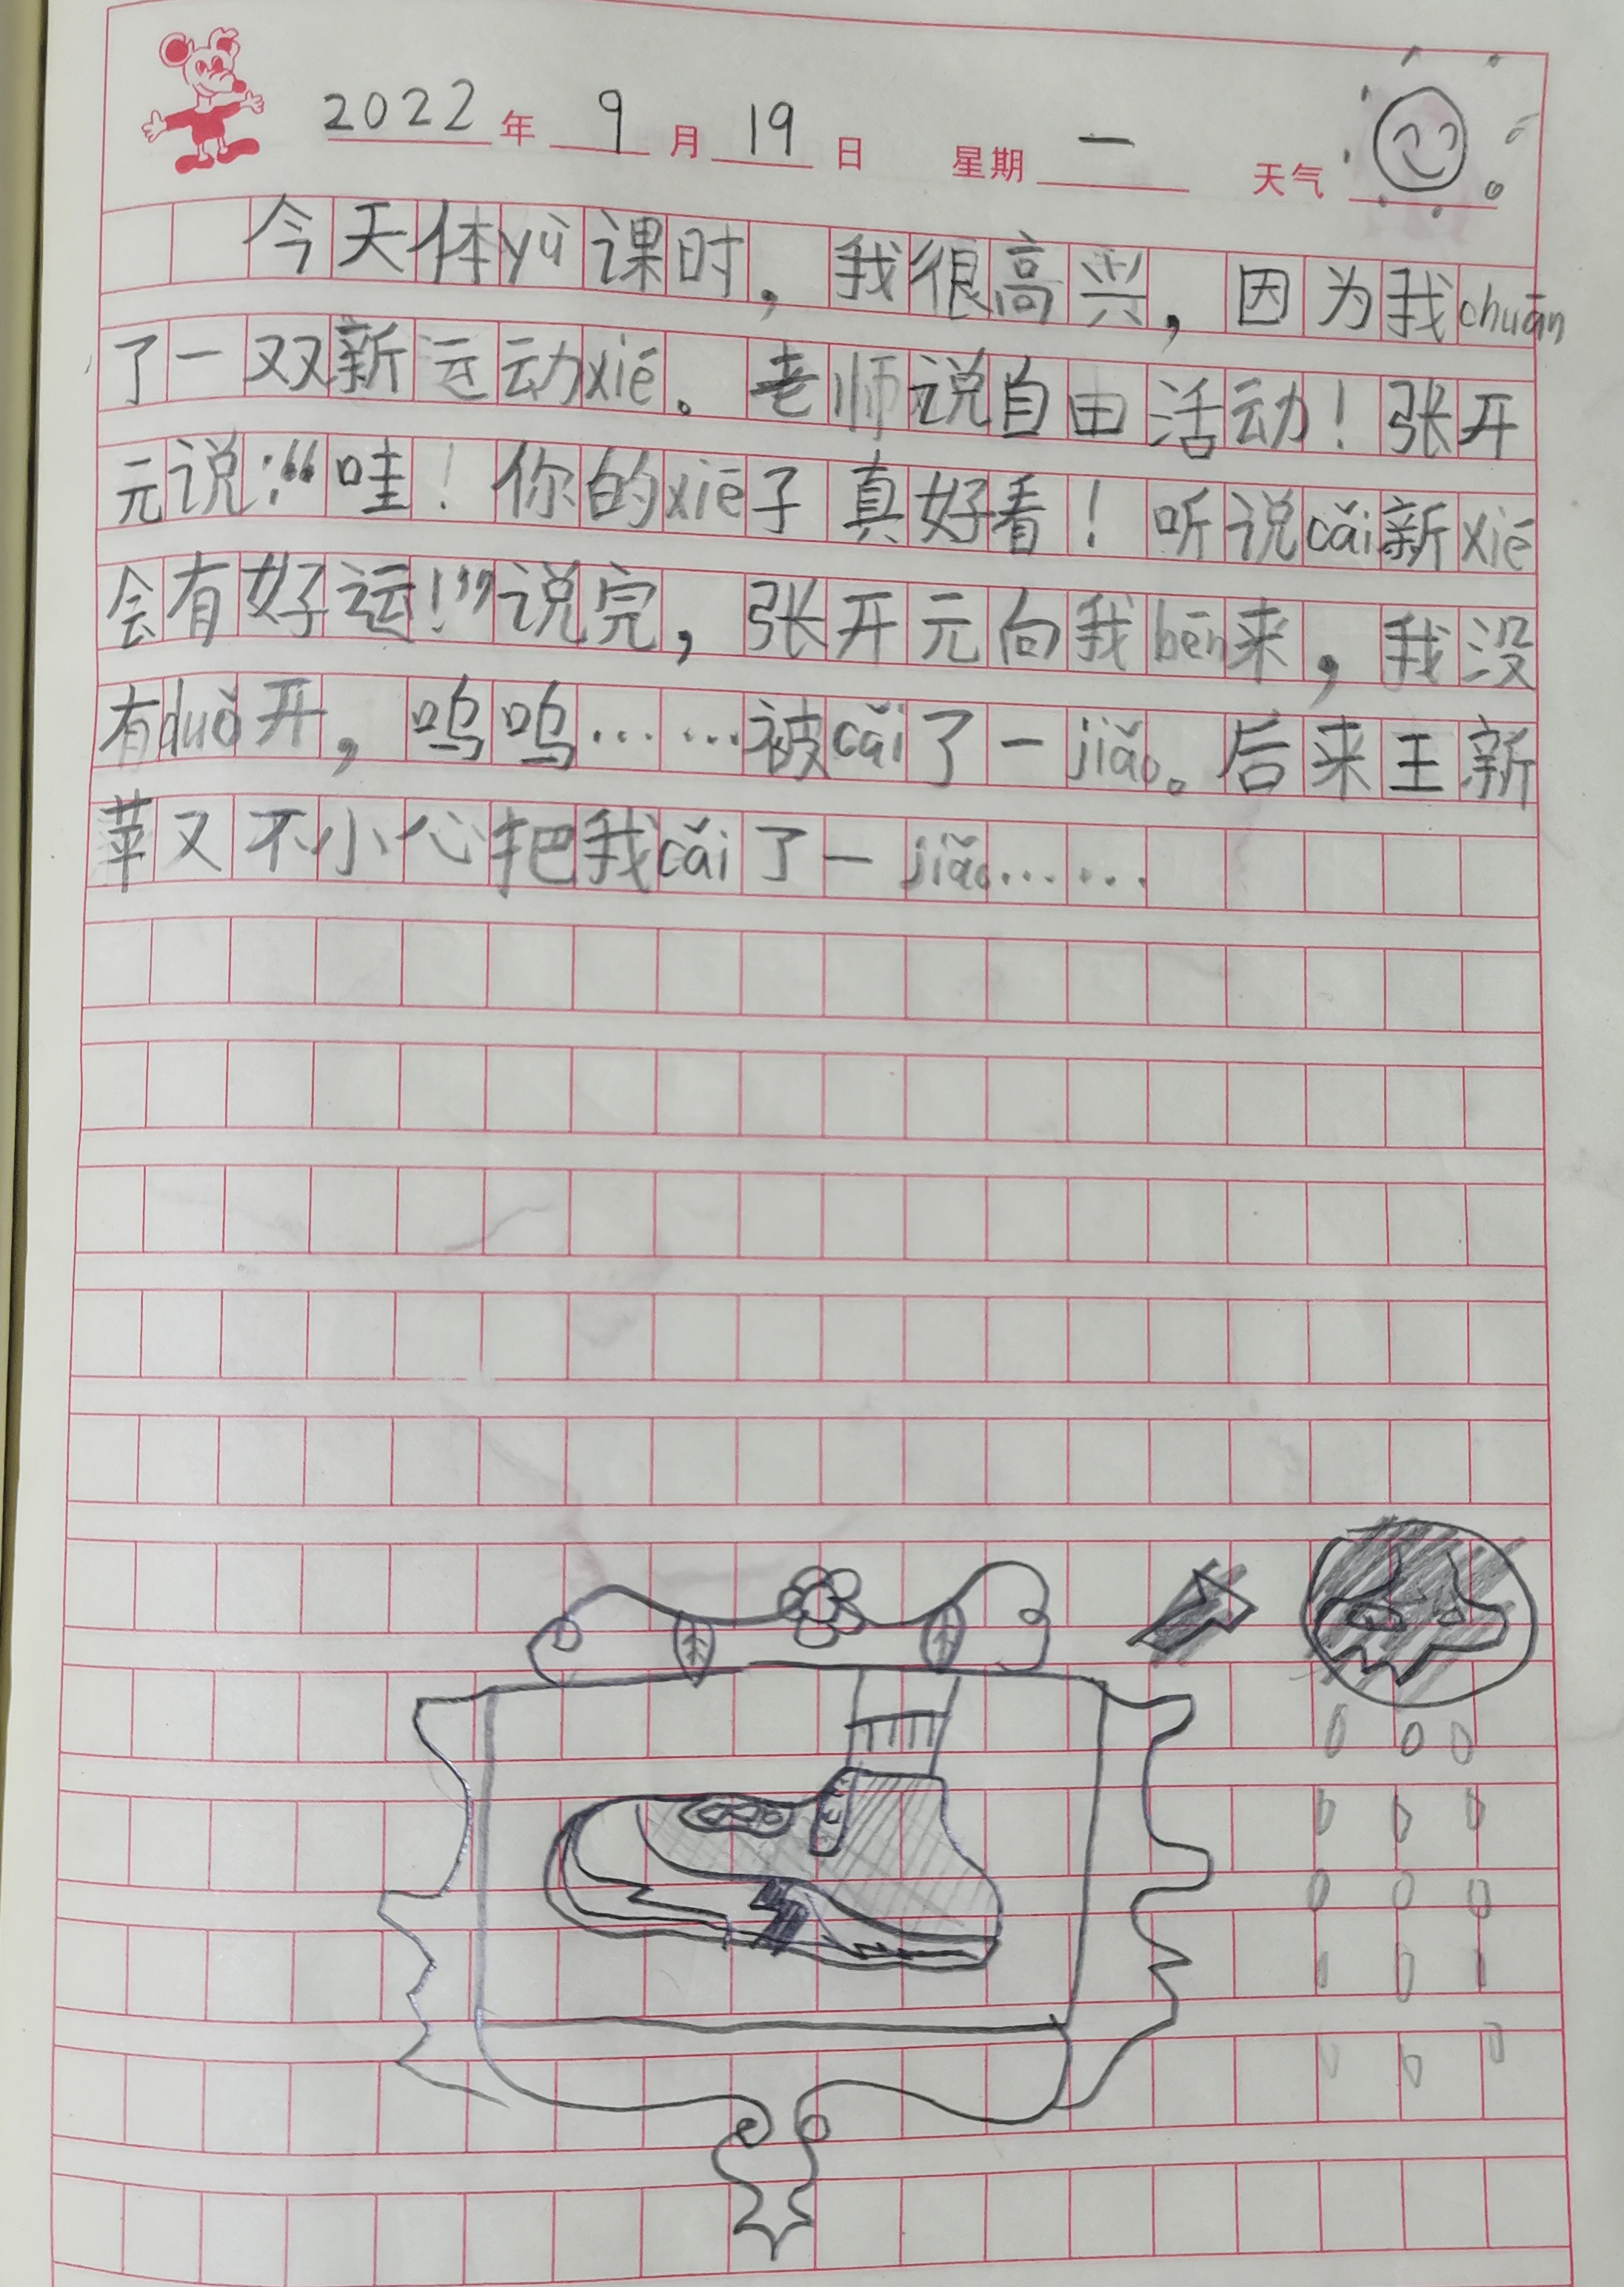 2022年9月19日 星期一 天气
今天体yù课时，我很高兴，因为我chuān
了一双新运动xié。老师说自由活动！张开
元说：“哇！你的xié子真好看！听说cǎi新xié
会有好运！”说完，张开元向我bēn来，我没
有duǒ开，呜呜……被cǎi了一jiǎo。后来王新
苹又不小心把我cǎi了一jiǎo……